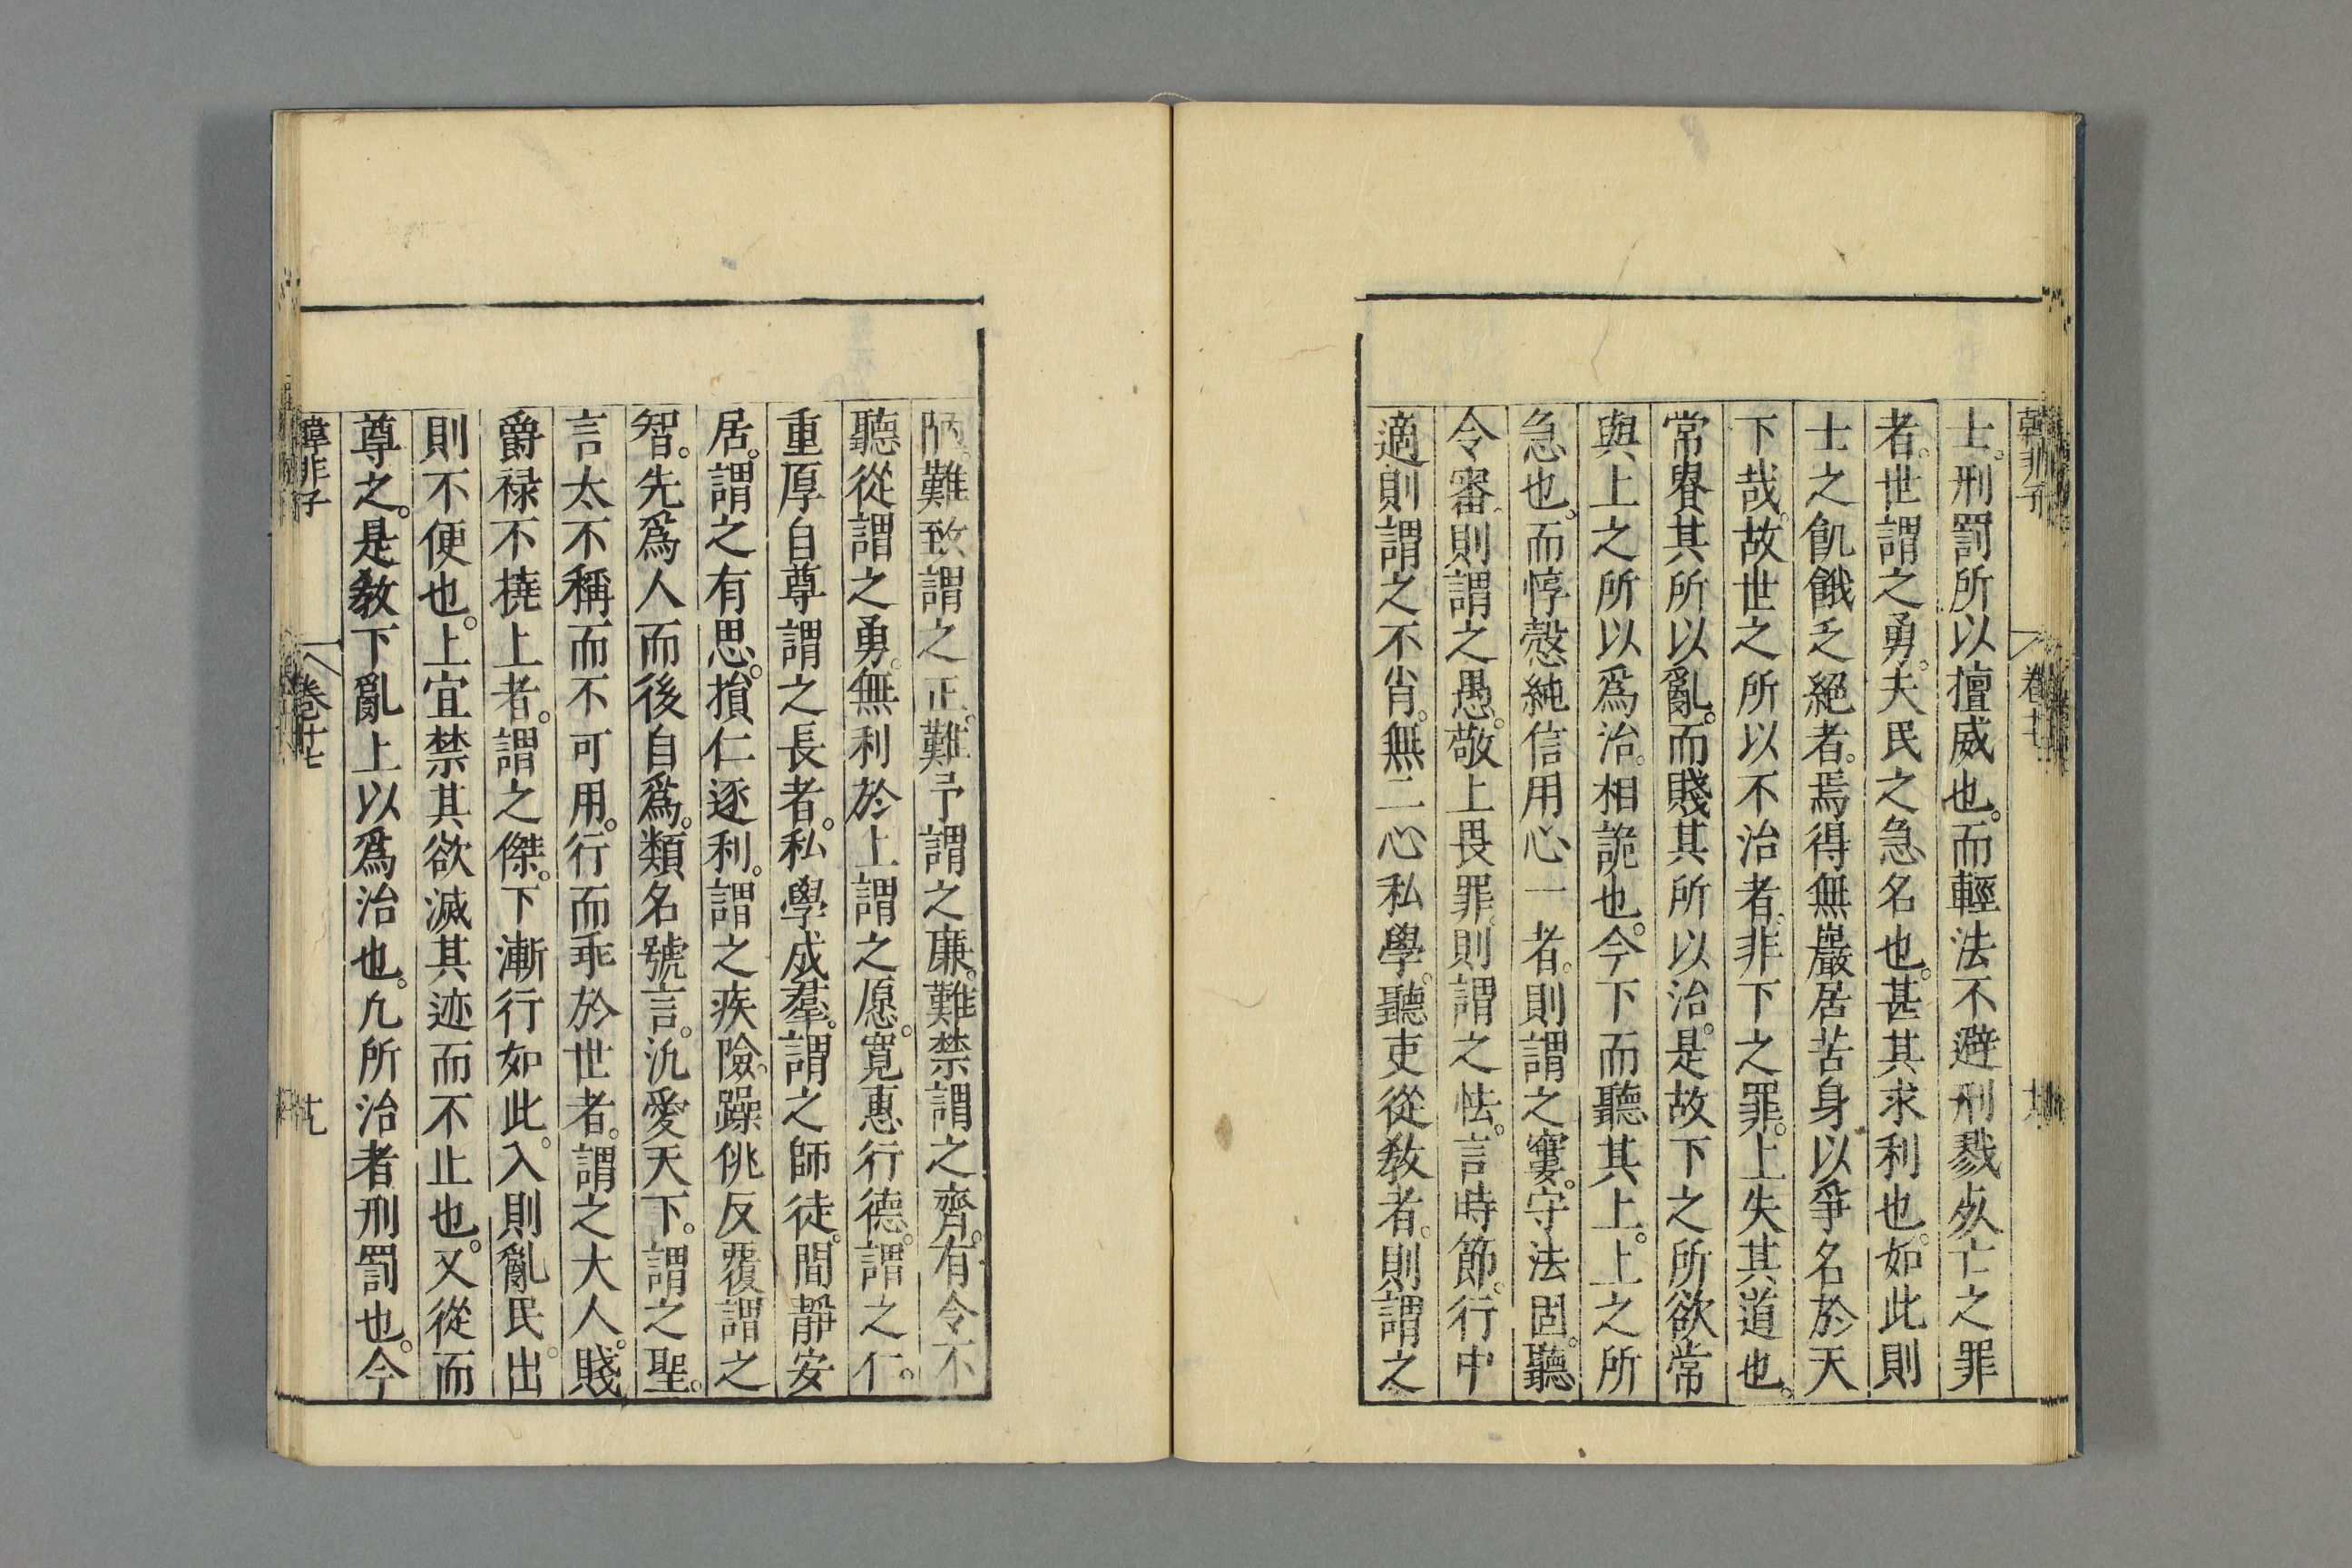 韓非子 卷十七
士。刑罰所以擅威也。而輕法不避刑戮死亡之罪
者。世謂之勇。夫民之急名也。甚其求利也。如此則
士之飢餓乏絕者。焉得無巖居苦身以爭名於天
下哉。故世之所以不治者。非下之罪。上失其道也。
常貴其所以亂。而賤其所以治。是故下之所欲常
與上之所以爲治。相詭也。今下而聽其上。上之所
急也。而惇愨純信用心一者。則謂之窶。守法固。聽
令審。則謂之愚。敬上畏罪。則謂之怯。言時節。行中
適則謂之不肖。無二心私學。聽吏從教者。則謂之
陋。難致謂之正。難予謂之廉。難禁謂之齊。有令不
聽從謂之勇。無利於上謂之愿。寬惠行德。謂之仁。
重厚自尊謂之長者。私學成羣。謂之師徒。閒靜安
居。謂之有思。損仁逐利。謂之疾險。躁佻反覆謂之
智。先爲人而後自爲。類名號言。汎愛天下。謂之聖。
言太不稱而不可用。行而乖於世者。謂之大人。賤
爵祿不撓上者。謂之傑。下漸行如此。入則亂民。出
則不便也。上宜禁其欲滅其迹而不止也。又從而
尊之。是教下亂上以爲治也。凢所治者刑罰也。今
韓非子 卷十七 十七